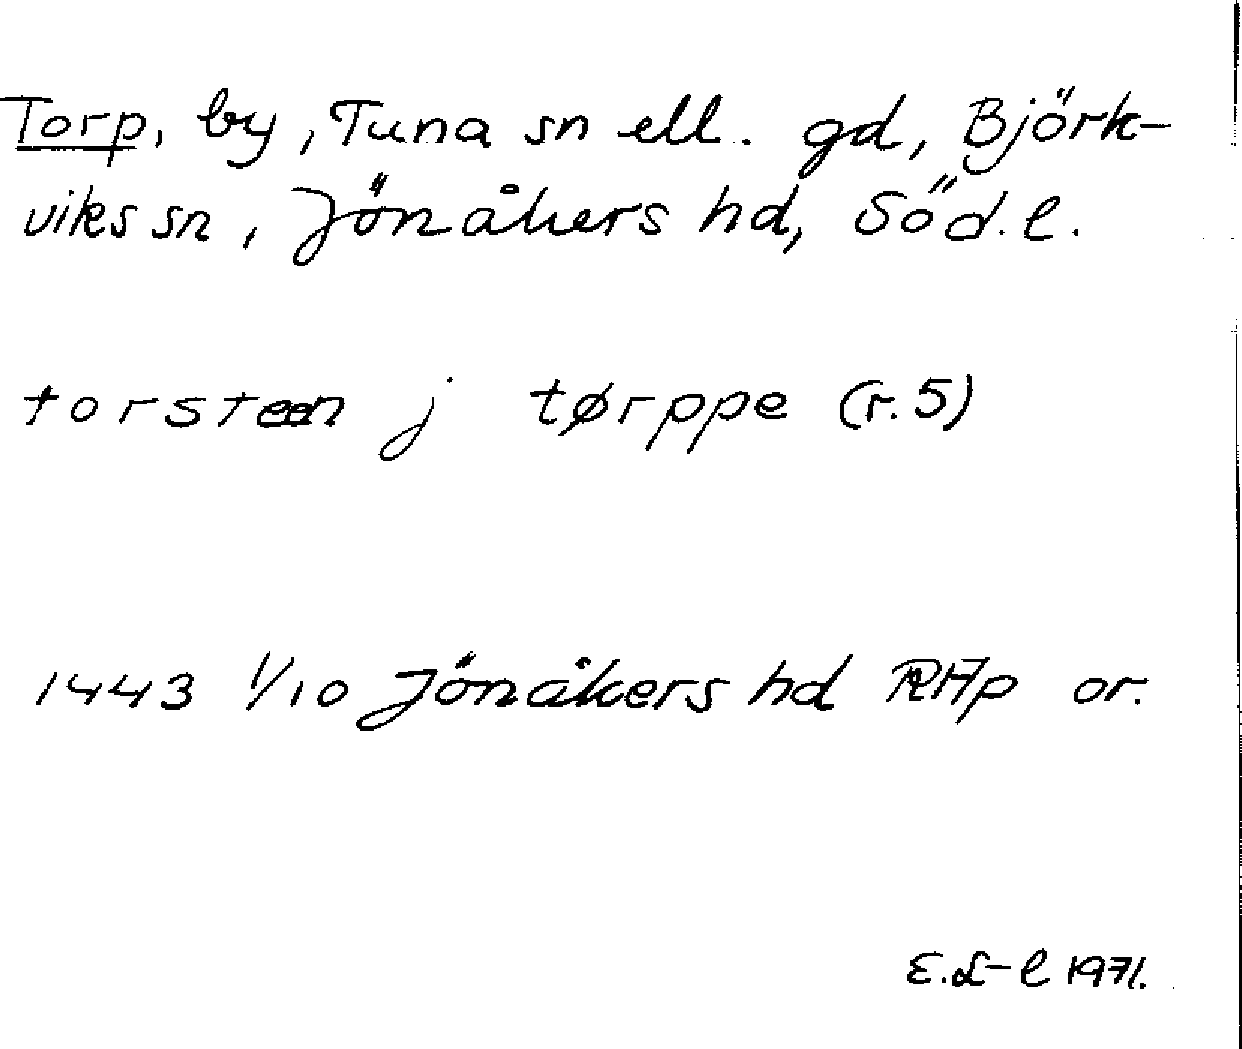 Torp, by, Tuna sn ell. gd, Björk-
viks sn, Jönåkers hd, Söd.l.
torsteen j tørppe (r.5)
1443 1/10 Jönåkers hd RAp or.
E.L-l 1971.